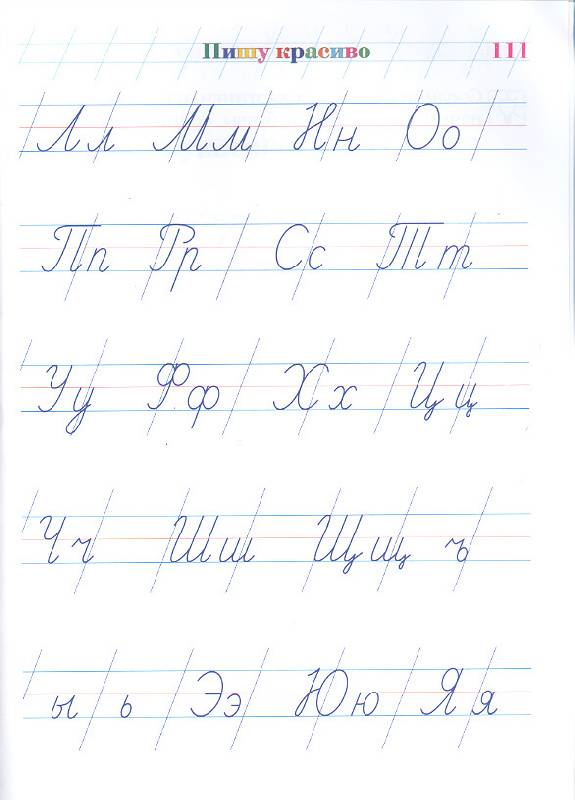 Пишу красиво 111
Лл Мм Нн Оо
Пп Рр Сс Тт
Уу Фф Хх Цц
Чч Шш Щщ ъ
ы ь Ээ Юю Яя